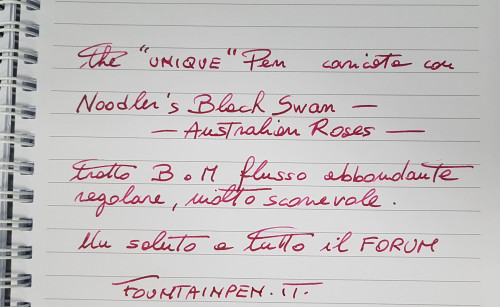 the "UNIQUE" Pen caricata con
Noodler's Black Swan —
— Australian Roses —
tratto B o M flusso abbondante
regolare, molto scorrevole.
Un saluto a tutto il FORUM
FOUNTAINPEN.IT.